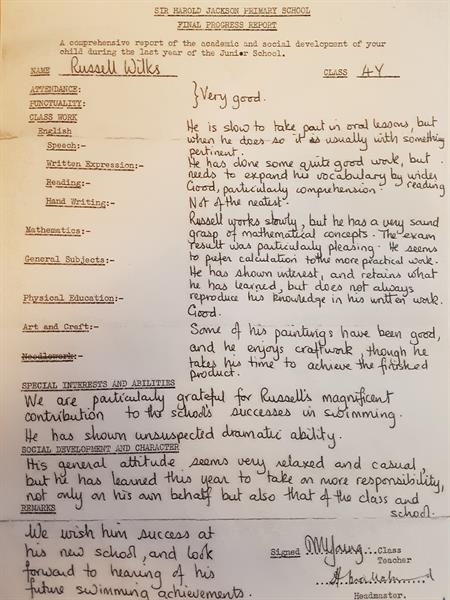 SIR HAROLD JACKSON PRIMARY SCHOOL
FINAL PROGRESS REPORT
A comprehensive report of the academic and social development of your
child during the last year of the Junior School.
NAME Russell Wilks CLASS 4Y
ATTENDANCE:
PUNCTUALITY:
} Very good.
CLASS WORK
English
Speech:-
He is slow to take part in oral lessons, but
when he does so it is usually with something
pertinent.
Written Expression:-
He has done some quite good work, but
needs to expand his vocabulary by wider
reading
Reading:-
Good, particularly comprehension.
Hand Writing:-
Not of the neatest.
Mathematics:-
Russell works slowly, but he has a very sound
grasp of mathematical concepts. The exam
result was particularly pleasing. He seems
to prefer calculation to the more practical work.
General Subjects:-
He has shown interest, and retains what
he has learned, but does not always
reproduce his knowledge in his written work.
Physical Education:-
Good.
Art and Craft:-
Some of his paintings have been good,
and he enjoys craftwork, though he
takes his time to achieve the finished
product.
Needlework:-
SPECIAL INTERESTS AND ABILITIES
We are particularly grateful for Russell's magnificent
contribution to the school's successes in swimming.
He has shown unsuspected dramatic ability.
SOCIAL DEVELOPMENT AND CHARACTER
His general attitude seems very relaxed and casual,
but he has learned this year to take on more responsibility,
not only on his own behalf but also that of the class and
school.
REMARKS
We wish him success at
his new school, and look
forward to hearing of his
future swimming achievements.
Signed Young Class
Teacher
Headmaster.